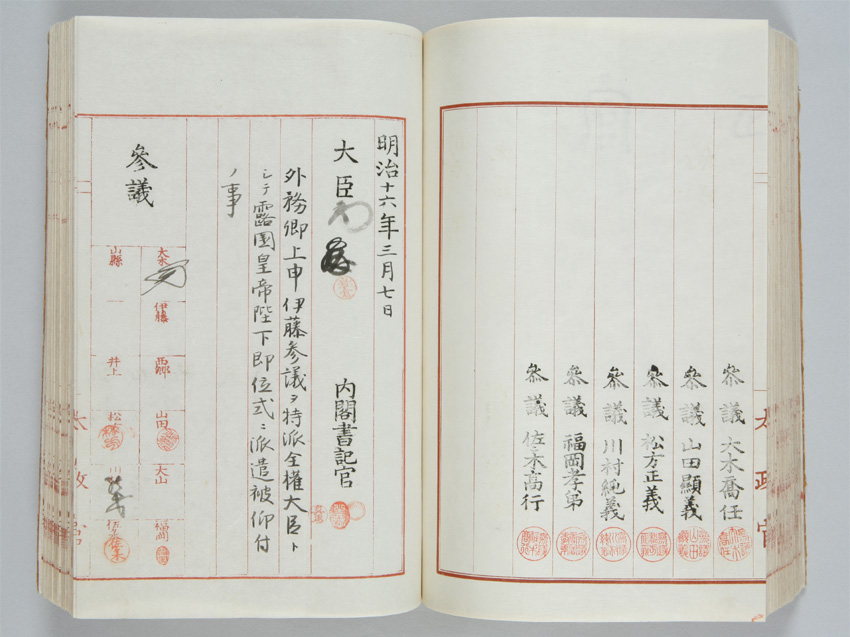 參議 大木喬任
參議 山田顯義
參議 松方正義
參議 川村純義
參議 福岡孝弟
參議 佐々木高行
明治十六年三月七日
大臣
内閣書記官
外務卿上申伊藤參議ヲ特派全權大臣ト
シテ露國皇帝陛下即位式ニ派遣被仰付
ノ事
參議
大木 伊藤 西郷 山田 大山 福岡
山縣 井上 松方 川村 佐々木
太政官